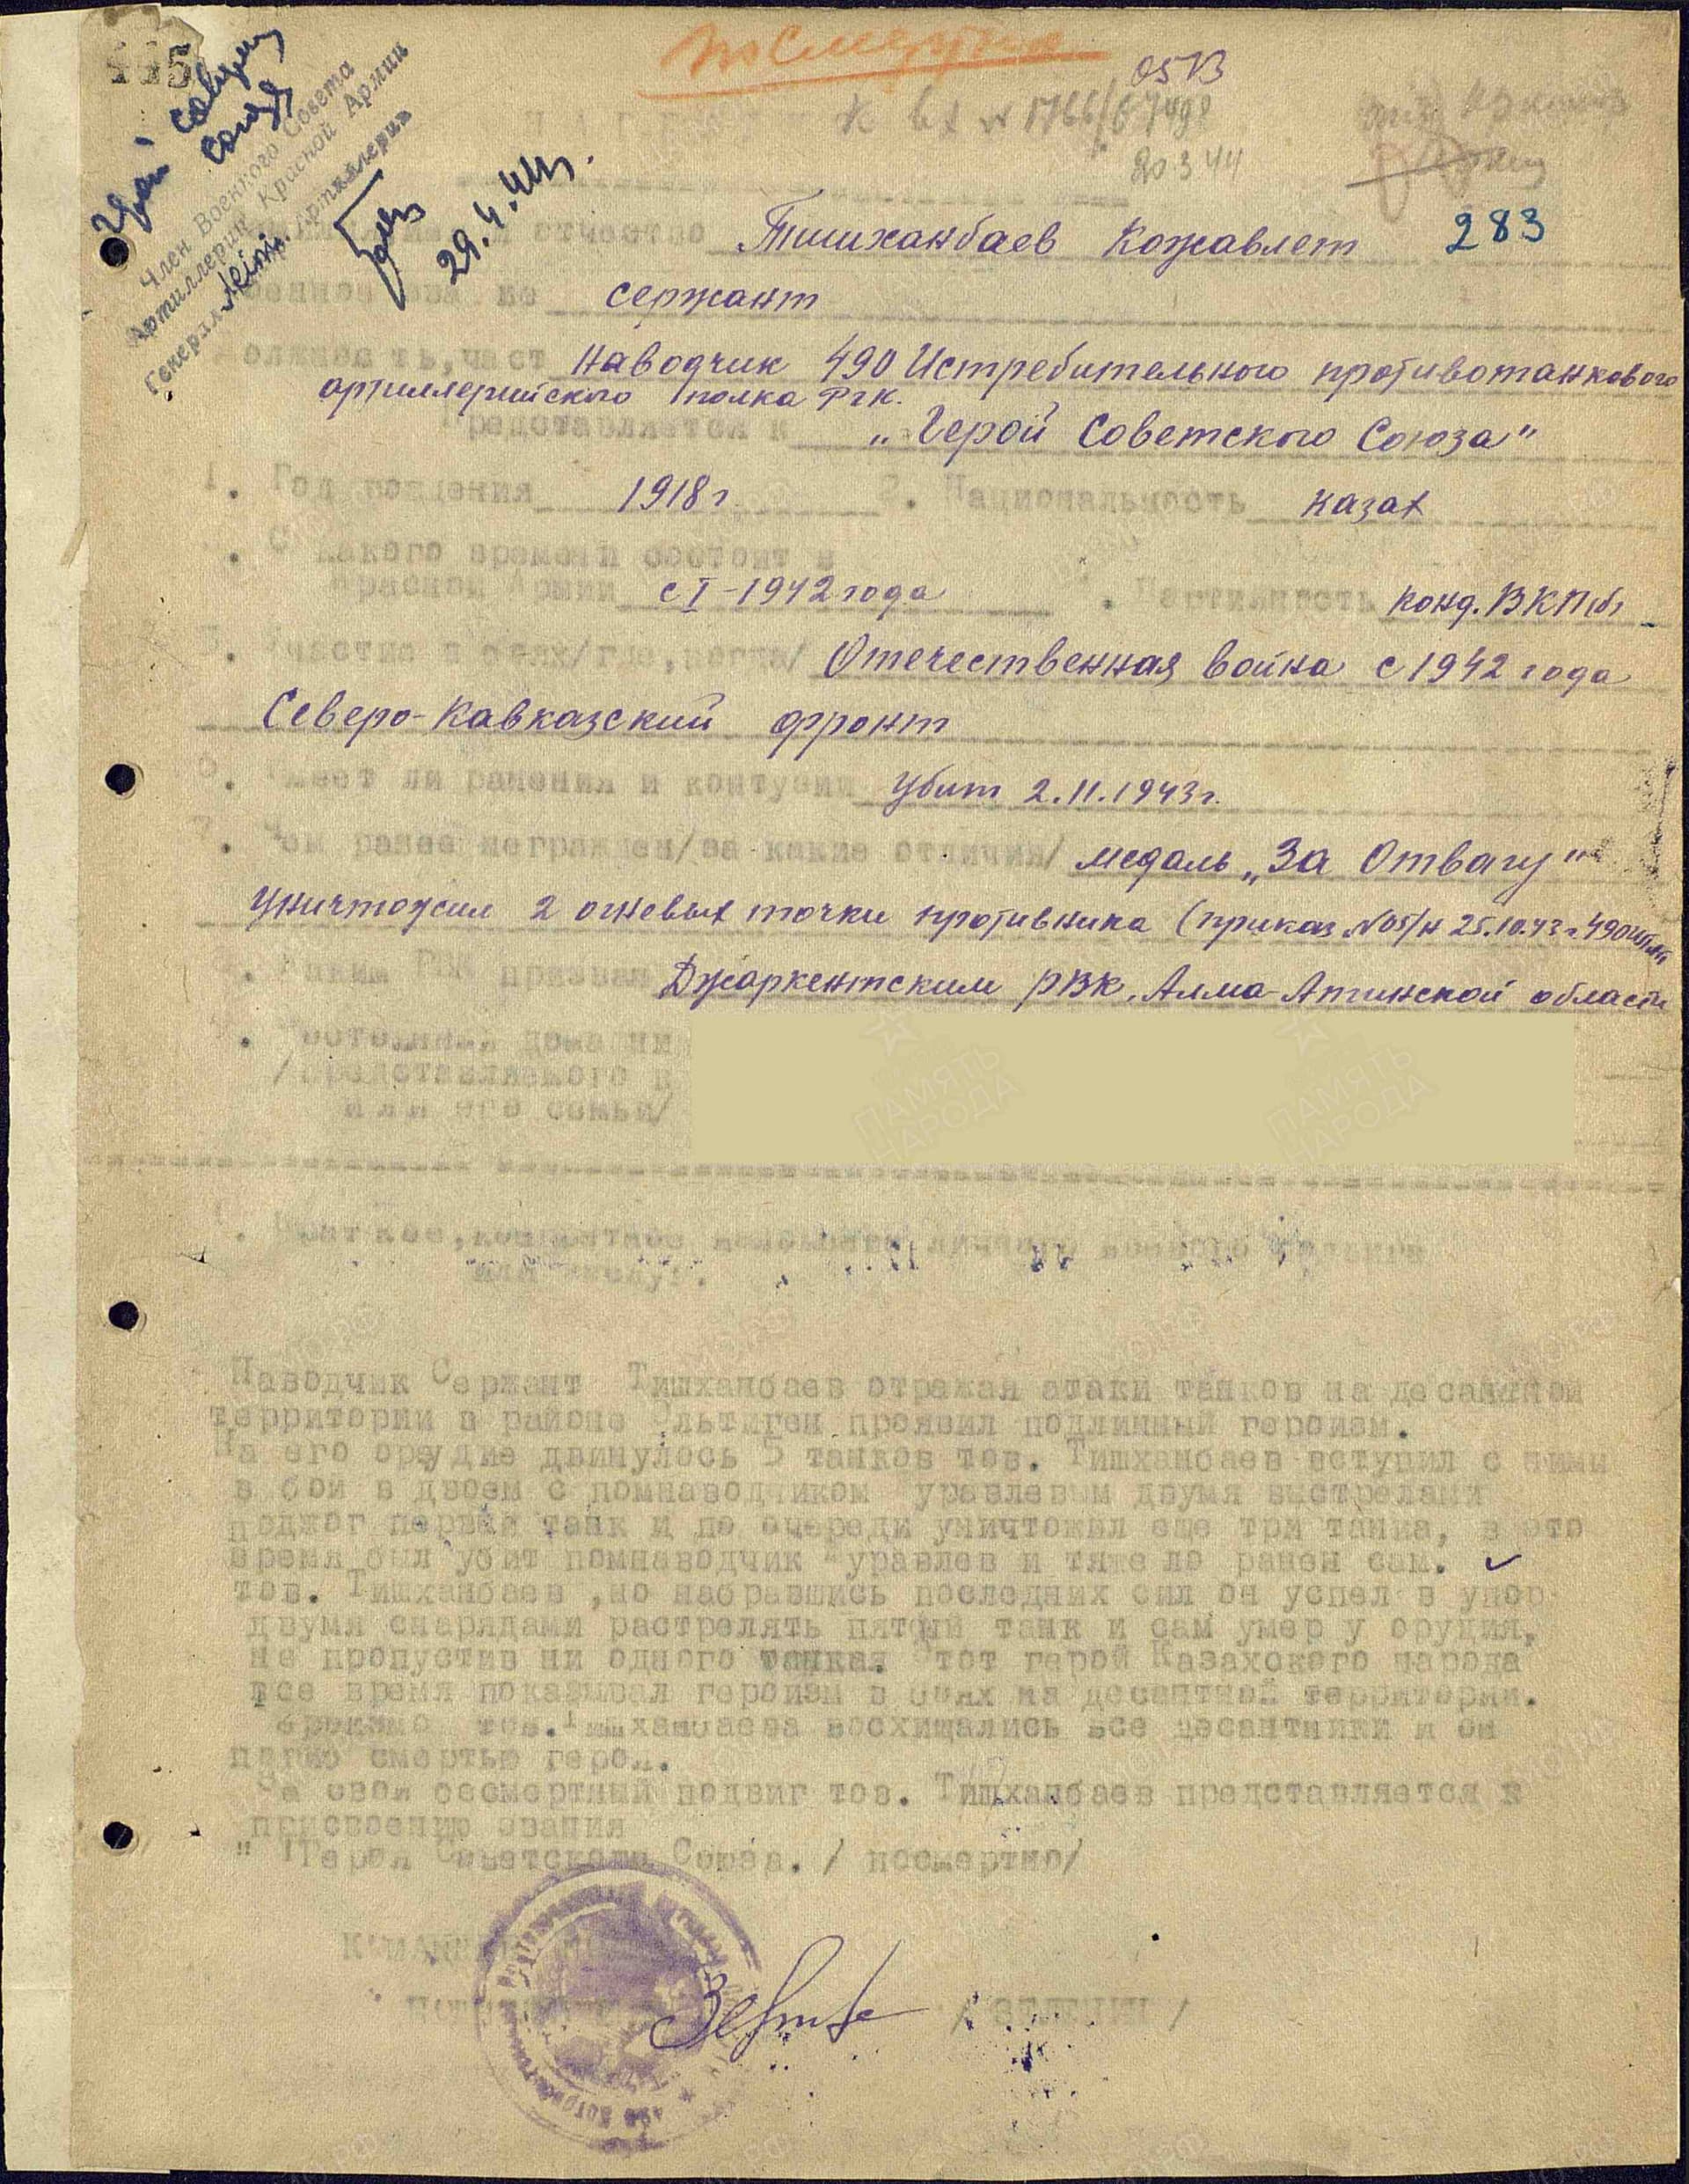 посмертно
Герой Советск Союза
Член Военного Совета
Артиллерии Красной Армии
Генерал-лейт. Артиллерии
29.4.44г.
К вх № 1766/67498
20.3.44
283
отчество Тишханбаев Кожавлет
сержант
Наводчик 490 Истребительного противотанкового
артиллерийского полка РГК.
Представляется к „Герой Советского Союза"
1. Год рождения 1918 г. 2. Национальность казах
. С какого времени состоит в
Красной Армии с I-1942 года . Партийность конд. ВКП(б)
5. Участие в боях/где, когда/ Отечественная война с 1942 года
Северо-Кавказский фронт
6. Имеет ли ранения и контузии убит 2.11.1943 г.
7. Чем ранее награжден/за какие отличия/ медаль „За Отвагу"
уничтожил 2 огневых точки противника (приказ №05/н 25.10.43 г. 490
. Каким РВК призван Джаркентским РВК, Алма-Атинской области
/представляемого к
или его семьи/
ПАМЯТЬ НАРОДА
ПАМЯТЬ НАРОДА
. Краткое, конкретное изложение личного боевого подвига
или заслуг.
Наводчик Сержант Тишханбаев отражая атаки танков на десантной
территории в районе Эльтиген проявил подлинный героизм.
На его орудие двинулось 5 танков тов. Тишханбаев вступил с ними
в бой в двоем с помнаводчиком уравлевым двумя выстрелами
поджог первый танк и по очереди уничтожил еще три танка, в это
время был убит помнаводчик уравлев и тяжело ранен сам.
тов. Тишханбаев ,но набравшись последних сил он успел в упор
двумя снарядами растрелять пятый танк и сам умер у орудия,
не пропустив ни одного танкая. Этот герой Казахского народа
все время показывал героизм в боях на десантной территории.
тов. Тишханбаева восхищались все десантники и он
смертью героя.
За свой бесмертный подвиг тов. Тишханбаев представляется к
присвоению звания
" Героя Советского Союза. / посмертно/